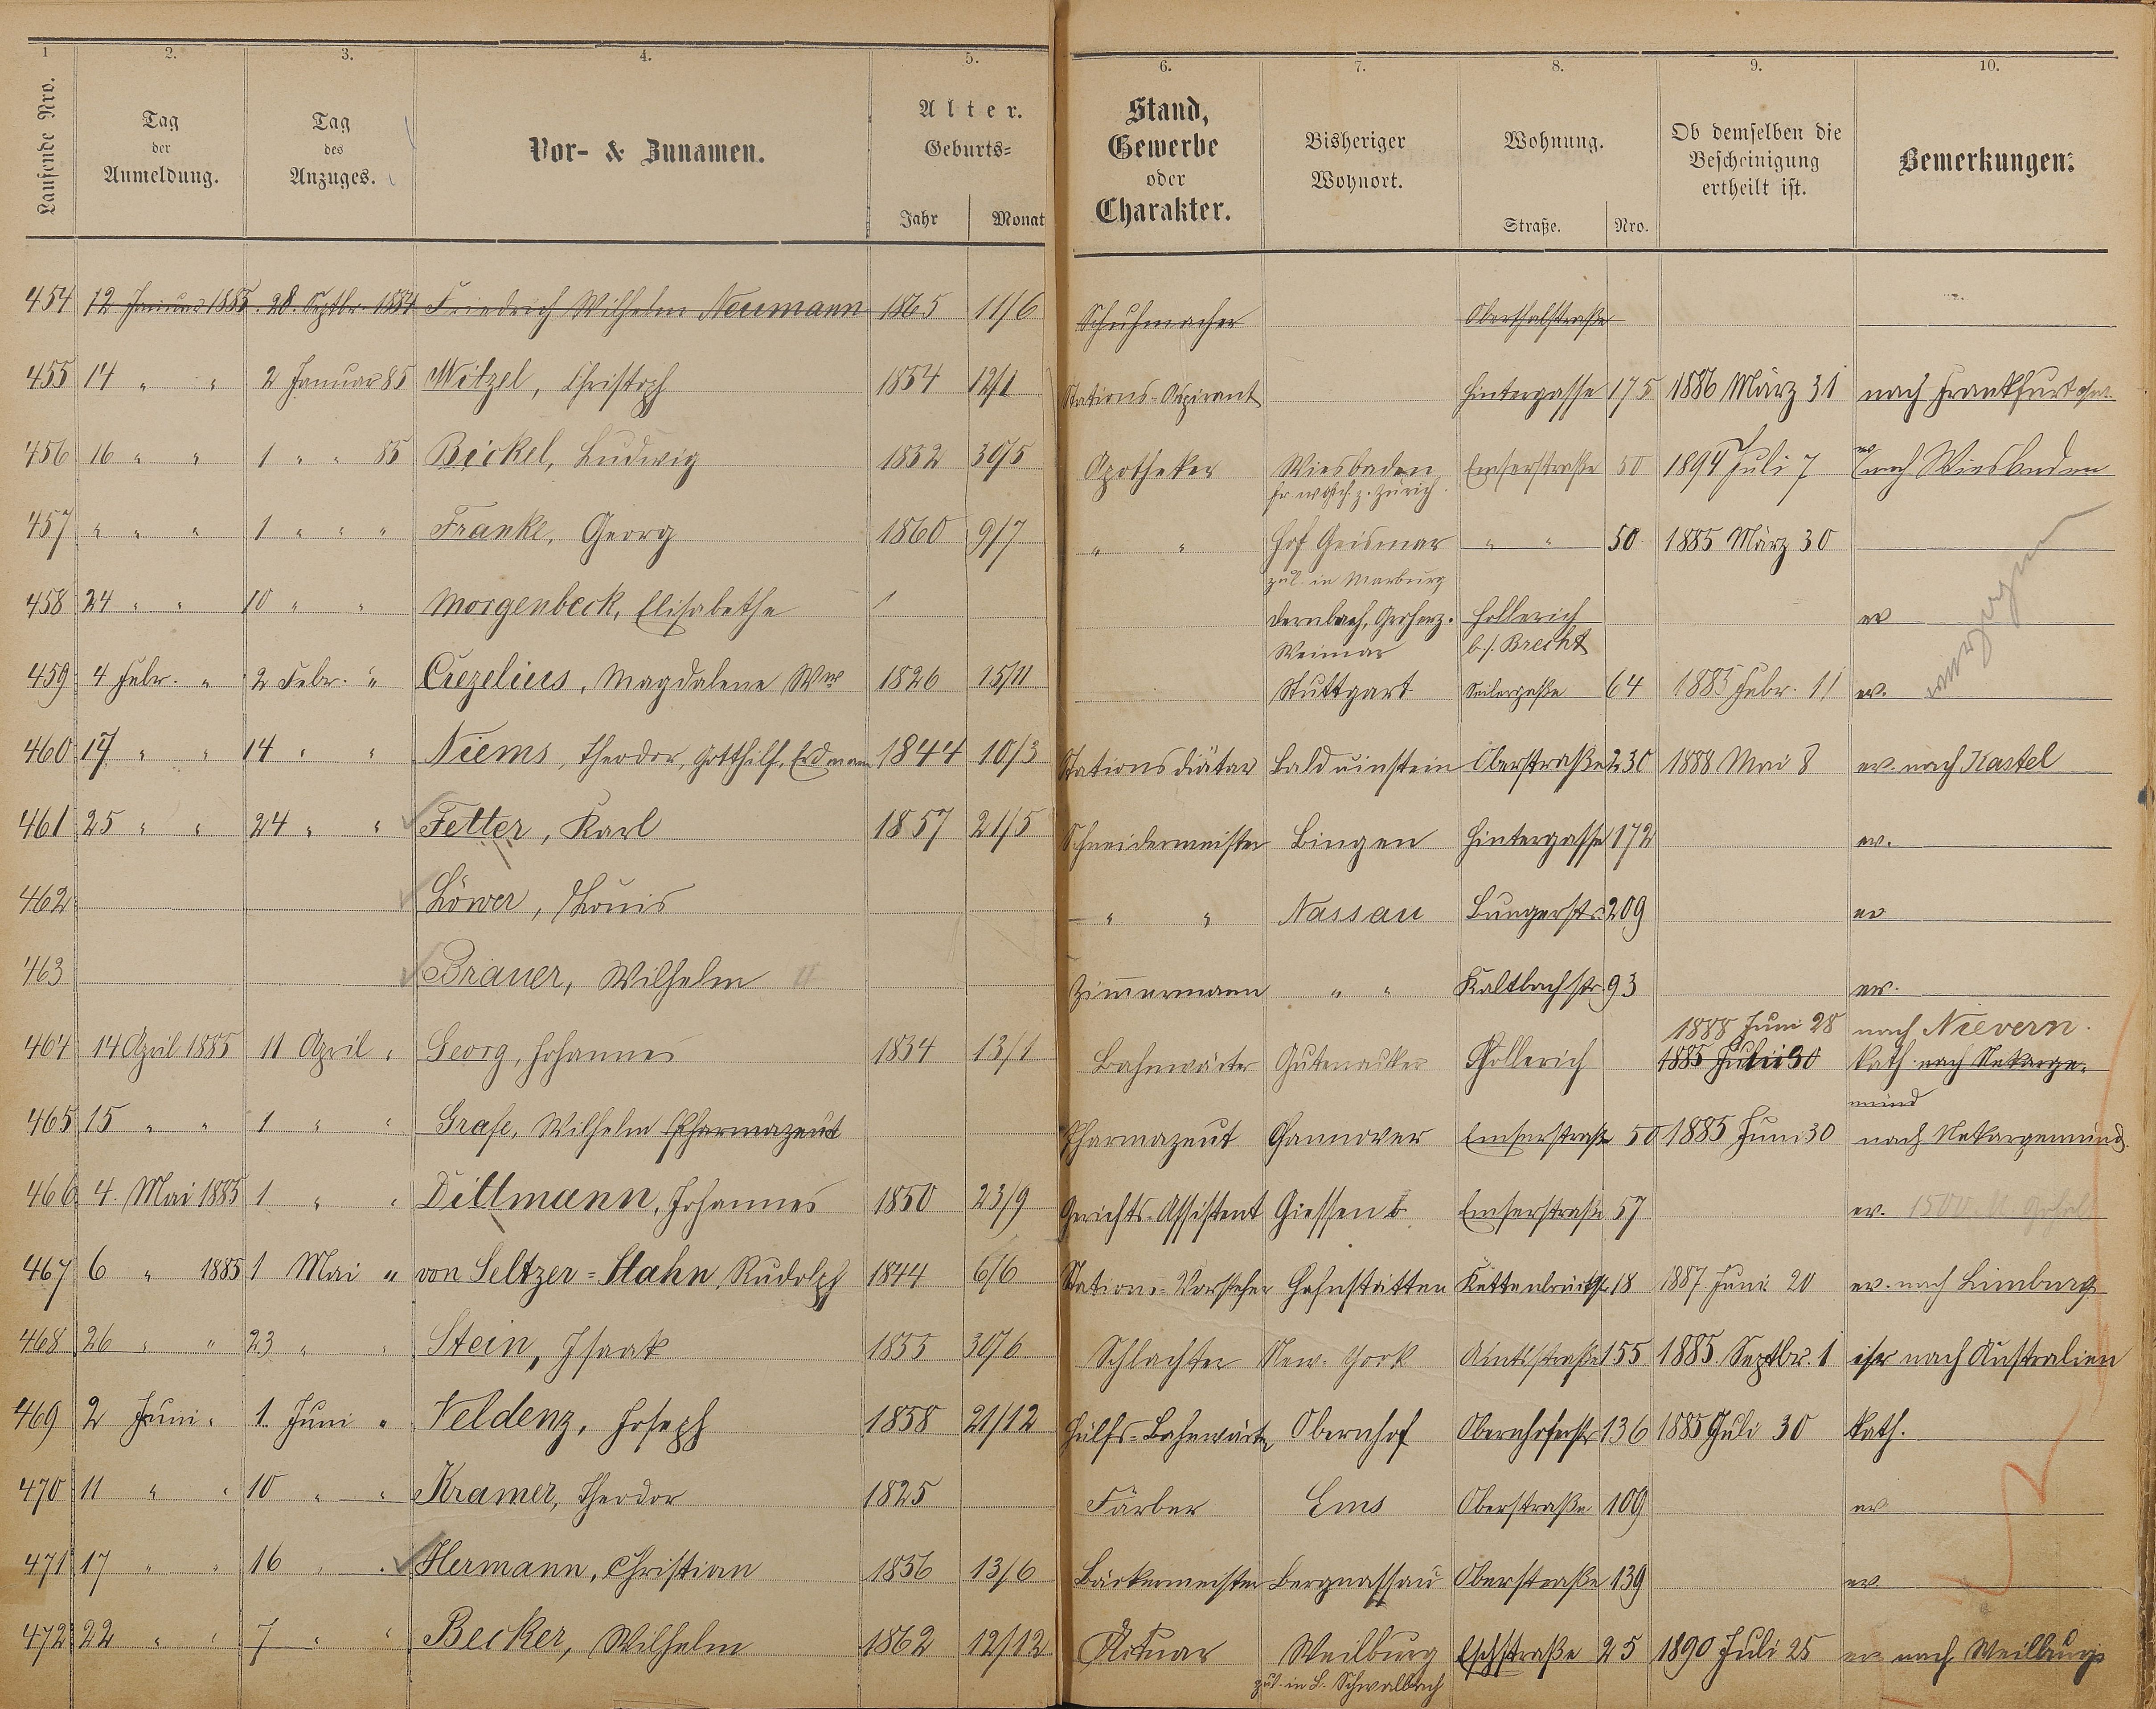 1 2. 3. 4. 5. 6. 7. 8. 9. 10.
Laufende Nro. Tag der Anmeldung. Tag des Anzuges. Vor- & Zunamen. Alter. Geburts= Jahr Monat Stand, Gewerbe oder Charakter. Bisheriger Wohnort. Wohnung. Straße. Nro. Ob demselben die Bescheinigung ertheilt ist. Bemerkungen.
454 12 Januar 1885. 28. Septbr. 1884 Friedrich Wilhelm Neumann 1865 11/6 Schuhmacher Oberthalstraße
455 14 " " 2 Januar 85 Witzel, Christoph 1854 12/1 Stations-Aspirant Hintergasse 175 1886 März 31 nach Frankfurt
456 16 " " 1 " " 85 Beickel, Ludwig 1852 30/5 Apotheker Wiesbaden Emserstraße 50 1894 Juli 7 ev nach Wiesbaden
z. Zürich
457 " " " 1 " " " Franke, Georg 1860 9/7 " " Hof Geismar " " 50 1885 März 30
zul. in Marburg
458 24 " " 10 " " Morgenbeck, Elisabethe 1 Dernbach, Hollerich ev
Weimar b/. Brecht
459 4 Febr. " 2 Febr. " Crezelius, Magdalene Ww 1826 15/11 Stuttgart Seilergaße 64 1885 Febr. 11 ev.
460 17 " " 14 " " Niems, Theodor, Gotthilf, Erdmann 1844 10/3 Stationsdiätar Balduinstein Oberstraße 230 1888 Mai 8 ev. nach Kastel
461 25 " " 24 " " Fetter, Karl 1857 21/5 Schneidermeister Bingen Hintergasse 172 ev.
462 Löwer, Louis " " Nassau Burgerstr. 209 ev
463 Brauer, Wilhelm II Zimmermann " " Kaltbachstr. 93 ev.
1888 Juni 28 nach Nievern.
464 14 April 1885 11 April " Georg, Johannes 1834 13/1 Bahnwärter Gutenacker Hollerich 1885 Juli 30 kath. nach Nekarge-
münd
465 15 " " 1 " " Grafe, Wilhelm Pharmazeut Pharmazeut Hannover Emserstraße 50 1885 Juni 30 nach Nekargemünd.
466 4. Mai 1885 1 " " Dittmann, Johannes 1850 23/9 Gerichts-Assistent Giessen Emserstraße 57 ev. 1500 M Gehalt
467 6 " 1885 1 Mai " von Seltzer=Hahn, Rudolph 1844 6/6 Stations-Vorsteher Hahnstätten Kettenbrückstr 18 1887 Juni 20 ev. nach Limburg
468 26 " " 23 " " Stein, Isaak 1855 30/6 Schlachter New-York Amtsstraße 155 1885 Septbr. 1 isr nach Australien
469 2 Juni " 1. Juni " Veldenz, Joseph 1858 21/12 Hülfs-Bahnwärter Obernhof Obernhoferstr 136 1885 Juli 30 kath.
470 11 " " 10 " " Kramer, Theodor 1825 Färber Ems Oberstraße 109 ev
471 17 " " 16 " " Hermann, Christian 1856 13/6 Bäckermeister Bergnassau Oberstraße 139 ev
472 22 " " 7 " " Becker, Wilhelm 1862 12/12 Aktuar Weilburg Eschstraße 25 1890 Juli 25 ev nach Weilburg
zul. in L. Schwalbach